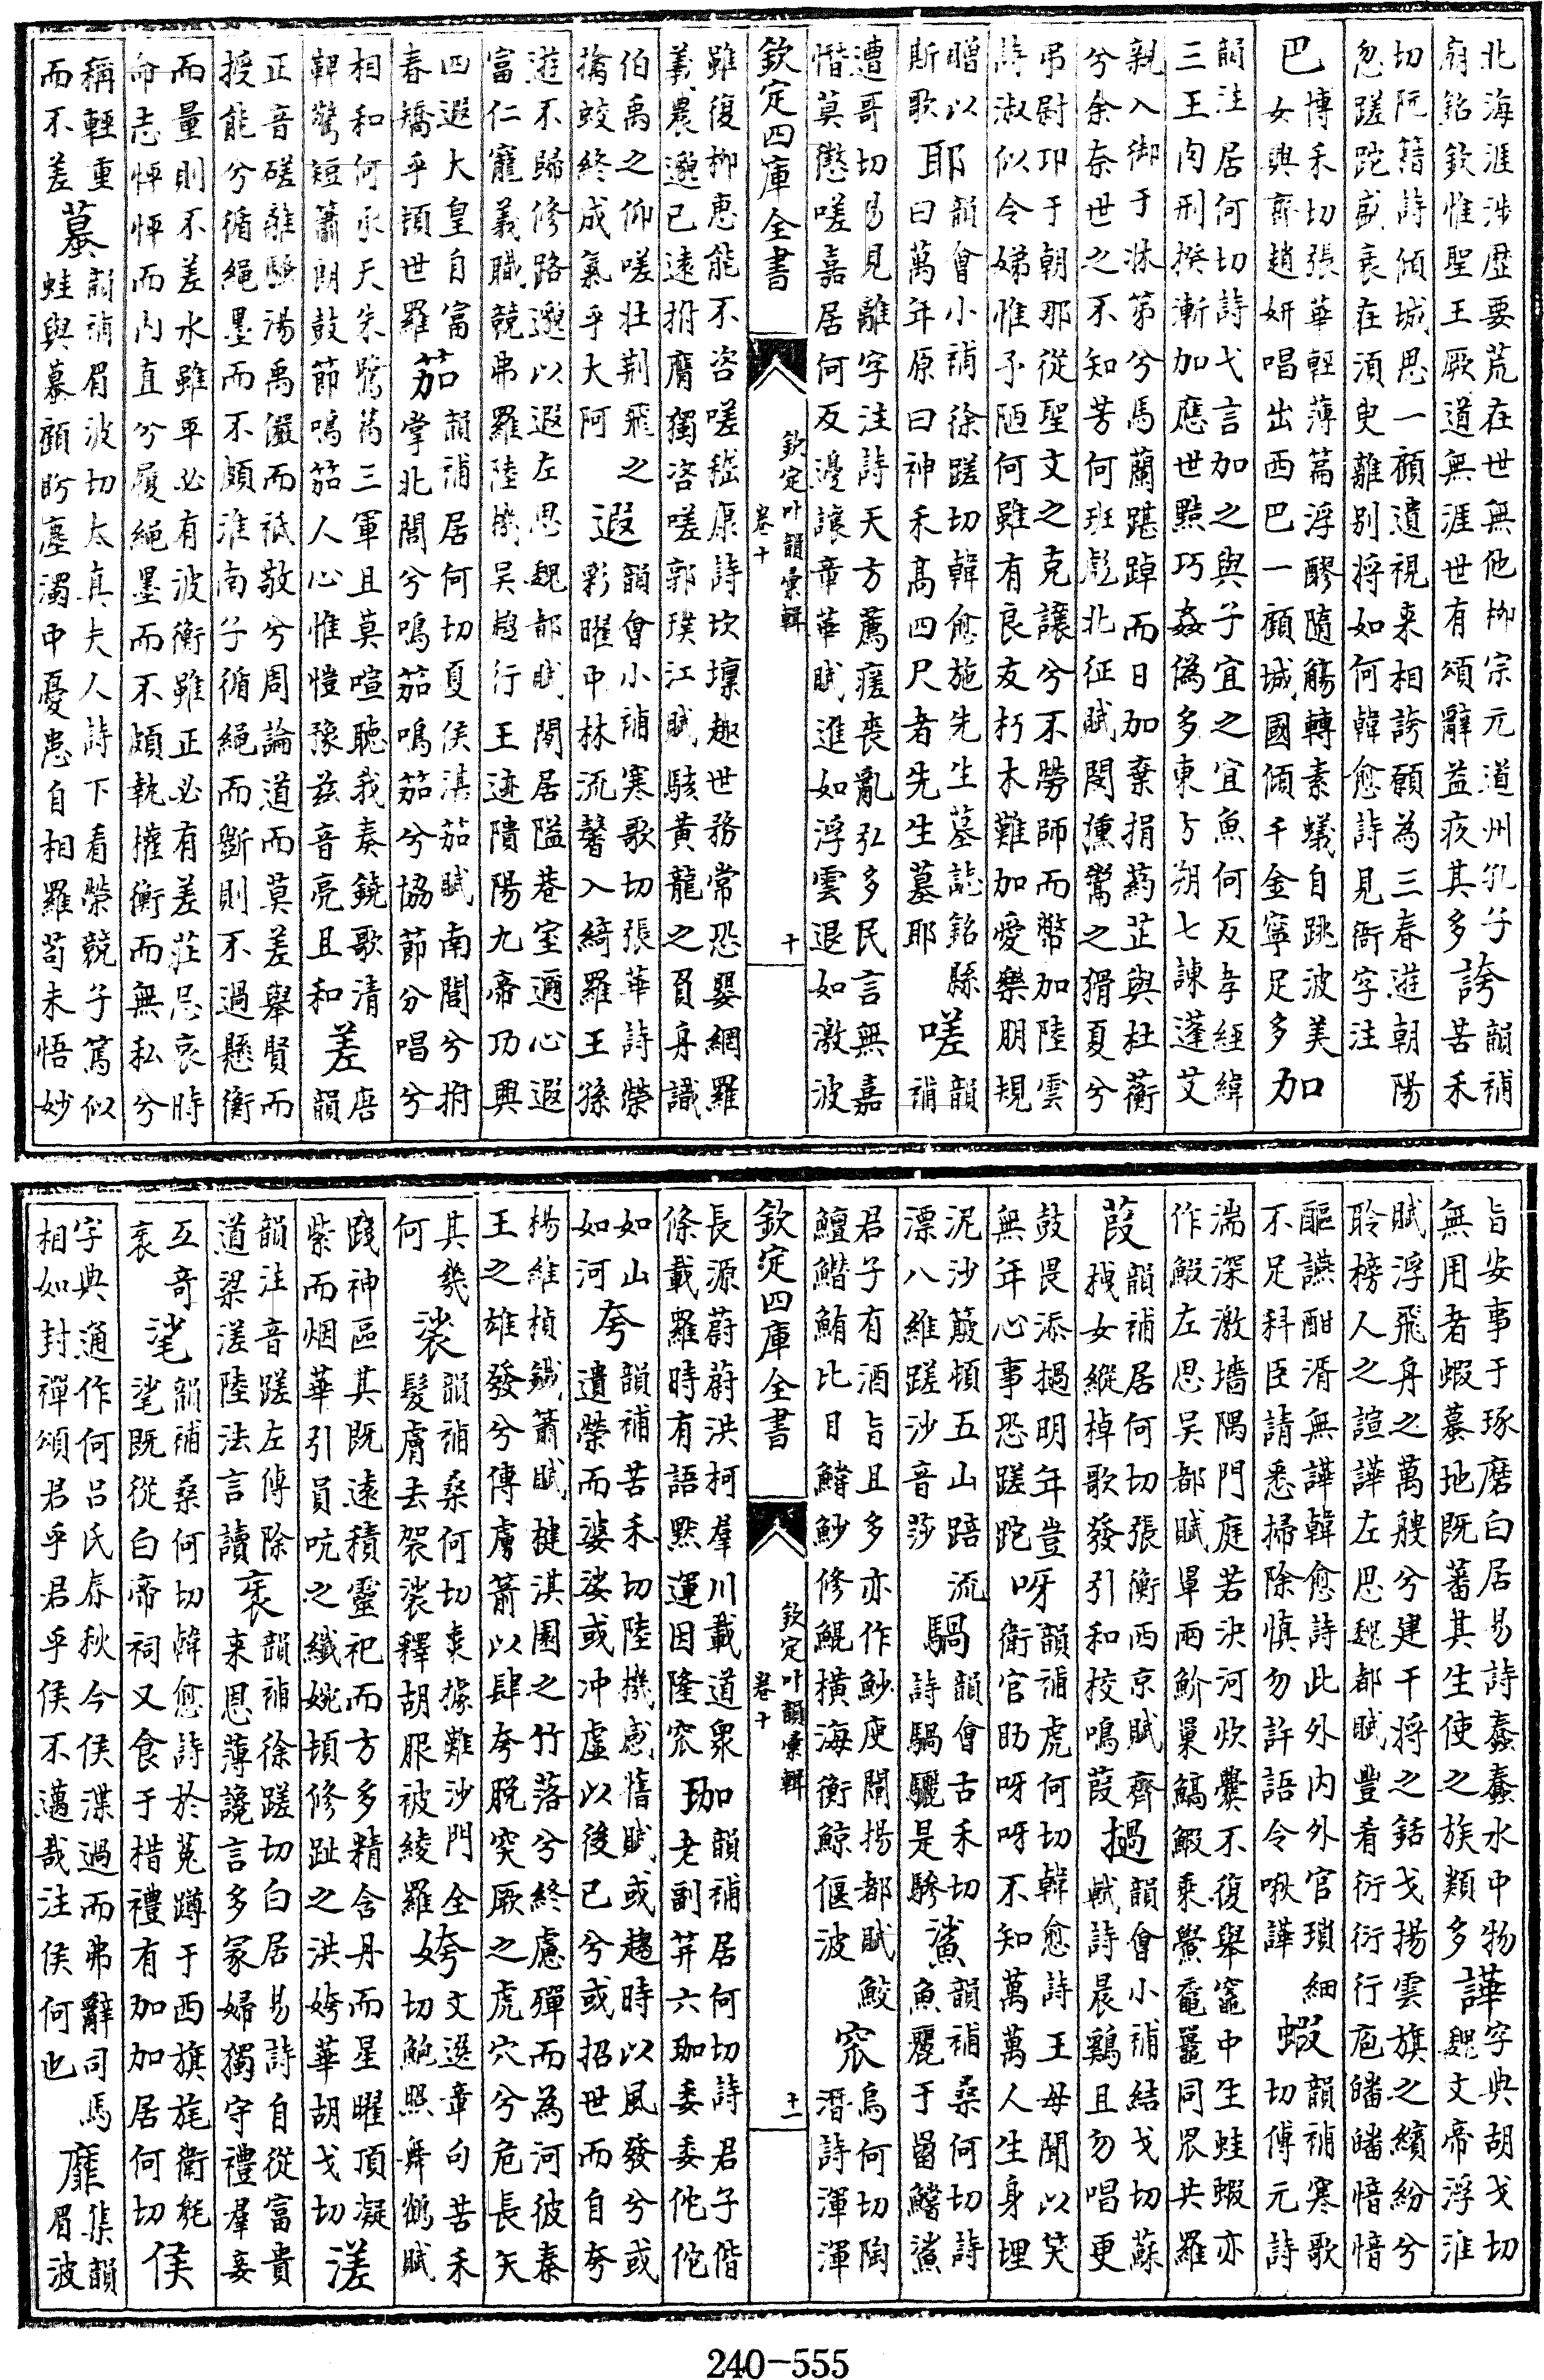 北海涯渉歴要荒在世無他栁宗元道州孔子
廟銘欽惟聖王厥道無涯世有頌辭益疚其多
誇
韻補
苦禾
切阮籍詩傾城思一顧遺視来相誇願為三春遊朝陽
忽蹉跎盛衰在湏臾離别将如何韓愈詩見衙字注
巴
博禾切張華輕薄篇浮醪隨觴轉素蟻自跳波美
女興齊趙妍唱出西巴一顧城國傾千金寧足多
加
韻注居何切詩弋言加之與子宜之宜魚何反孝經緯
三王肉刑揆漸加應世黠巧姦偽多東方朔七諫蓬艾
親入御于牀第兮馬蘭踸踔而日加棄捐葯芷與杜蘅
兮余奈世之不知芳何班彪北征賦閔獯鬻之猾夏兮
弔尉卭于朝那從聖文之克讓兮不勞師而幣加陸雲
詩淑似令娣惟予陋何雖有良友朽木難加愛樂朋規
贈以
斯歌
耶
韻會小補徐蹉切韓愈施先生墓誌銘縣
曰萬年原曰神禾髙四尺者先生墓耶
嗟
韻
補
遭哥切易見離字注詩天方薦瘥喪亂弘多民言無嘉
憯莫懲嗟嘉居何反邊讓章華賦進如浮雲退如激波
欽定四庫全書
欽定叶韻彙輯
卷十
十
雖復栁惠能不咨嗟嵇康詩坎壈趣世務常恐嬰網羅
羲農邈已遠拊膺獨咨嗟郭璞江賦駭黄龍之負舟識
伯禹之仰嗟壯荆飛之
擒蛟終成氣乎大阿
遐
韻會小補寒歌切張華詩榮
彩曜中林流馨入綺羅王孫
遊不歸修路邈以遐左思魏都賦閒居隘巷室邇心遐
富仁寵義職競弗羅陸機吴趨行王迹隤陽九帝功興
四遐大皇自富
春矯手頓世羅
茄
韻補居何切夏侯湛茄賦南閭兮拊
掌北閭兮鳴笳鳴笳兮協節分唱兮
相和何承天朱鷺篇三軍且莫喧聽我奏鐃歌清
鞞驚短簫朗鼓節鳴笳人心惟愷豫兹音亮且和
差
唐
韻
正音磋離騷湯禹儼而祗敬兮周論道而莫差舉賢而
授能兮循繩墨而不頗淮南子循繩而斷則不過懸衡
而量則不差水雖平必有波衡雖正必有差莊忌哀時
命志怦怦而内直兮履繩墨而不頗執權衡而無私兮
稱輕重
而不差
蟇
韻補眉波切太真夫人詩下看榮競子篤似
蛙與蟇顧盻塵濁中憂患自相羅苟未悟妙
旨安事于琢磨白居易詩蠢蠢水中物
無用者蝦蟇地既蕃其生使之族類多
譁
字典胡戈切
魏文帝浮淮
賦浮飛舟之萬艘兮建干将之銛戈揚雲旗之繽紛兮
聆榜人之諠譁左思魏都賦豐肴衍衍行庖皤皤愔愔
醧讌酣湑無譁韓愈詩此外内外官瑣細
不足科臣請悉掃除慎勿許語令啾譁
蝦
韻補寒歌
切傅元詩
湍深激墻隅門庭若決河炊爨不復舉竈中生蛙蝦亦
作鰕左思吴都賦罩兩魪巢鰝鰕乗鱟黿鼉同罛共羅
葭
韻補居何切張衡西京賦齊
栧女縱棹歌發引和校鳴葭
撾
韻會小補結戈切蘇
軾詩晨鷄且勿唱更
鼓畏添撾明年豈
無年心事恐蹉跎
呀
韻補虎何切韓愈詩王母聞以笑
衛官助呀呀不知萬萬人生身埋
泥沙簸頓五山踣流
漂八維蹉沙音莎
騧
韻會古禾切
詩騧驪是驂
鯊
韻補桑何切詩
魚麗于罶鱨鯊
君子有酒旨且多亦作魦庾闡揚都賦鮫
鱣鰭鮪比目鱛魦修鯤横海衡鯨偃波
窊
烏何切陶
潛詩渾渾
欽定四庫全書
欽定叶韻彙輯
卷十
十一
長源蔚蔚洪柯羣川載道衆
條載羅時有語黙運因隆窊
珈
韻補居何切詩君子偕
老副笄六珈委委佗佗
如山
如河
夸
韻補苦禾切陸機感惜賦或趨時以風發兮或
遺榮而婆娑或冲虛以後已兮或招世而自夸
楊維楨鐵簫賦揵淇園之竹落兮終慮殫而為河彼秦
王之雄發兮傳膚蕭以肆夸脱突厥之虎穴兮危長矢
其幾
何
裟
韻補桑何切袁據難沙門全
髮膚去袈裟釋胡服被綾羅
姱
文選章句苦禾
切鮑照舞鶴賦
踐神區其既遠積靈祀而方多精含丹而星曜頂凝
紫而烟華引員吭之纖婉頓修趾之洪姱華胡戈切
溠
韻注音蹉左傳除
道梁溠陸法言讀
衺
韻補徐蹉切白居易詩自從富貴
来恩薄讒言多冢婦獨守禮羣妾
互奇
衺
毟
韻補桑何切韓愈詩於菟蹲于西旗旄衛毿
毟既從白帝祠又食于㫺禮有加加居何切
侯
字典通作何吕氏春秋今侯渫過而弗辭司馬
相如封禪頌君乎君乎侯不邁哉注侯何也
靡
集韻
眉波
240-555